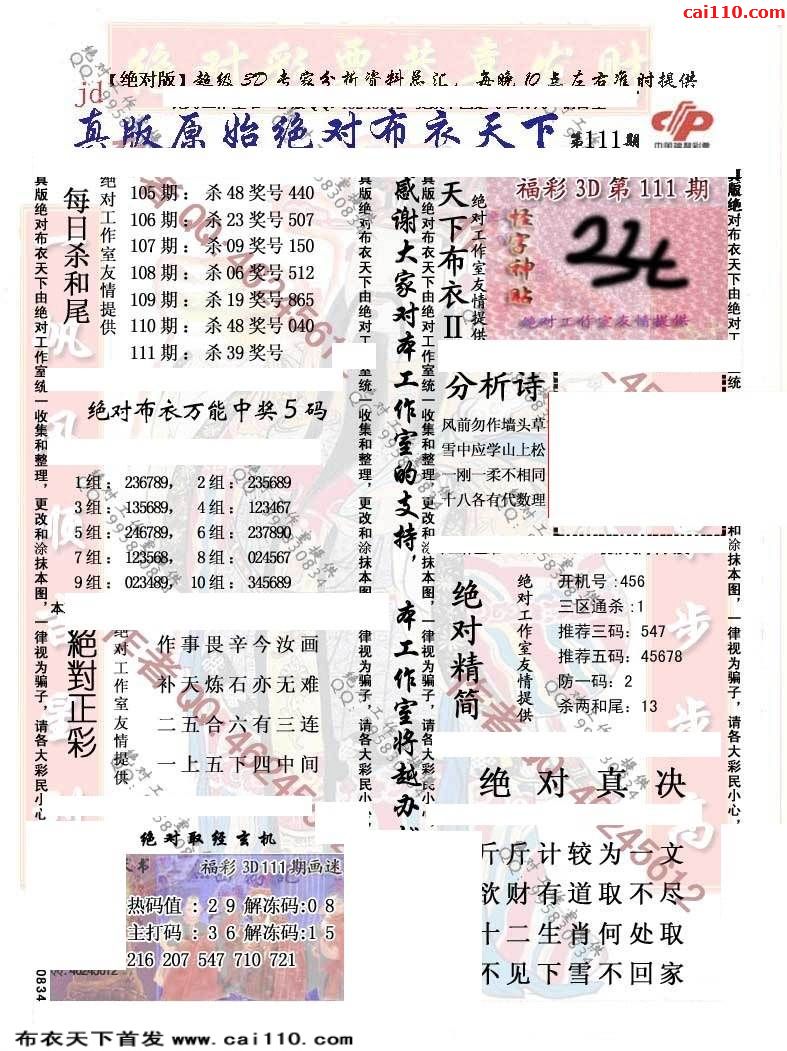 cai110.com
【绝对版】超级3D专家分析资料总汇，每晚10点左右准时提供
jd
真版原始绝对布衣天下 第111期
中国福利彩票
每日杀和尾
绝对工作室友情提供
105期：杀48奖号440
106期：杀23奖号507
107期：杀09奖号150
108期：杀06奖号512
109期：杀19奖号865
110期：杀48奖号040
111期：杀39奖号
感谢大家对本工作室的支持，本工作室将越办
天下布衣II
绝对工作室友情提供
福彩3D第111期
怪字神贴
绝对工作室友情提供
真版绝对布衣天下由绝对工作室统一收集和整理，更改和涂抹本图，一律视为骗子，请各大彩民小心
绝对布衣万能中奖5码
1组：236789，2组：235689
3组：135689，4组：123467
5组：246789，6组：237890
7组：123568，8组：024567
9组：023489，10组：345689
分析诗
风前勿作墙头草
雪中应学山上松
一刚一柔不相同
十八各有代数理
本
絕對正彩
绝对工作室友情提供
作事畏辛今汝画
补天炼石亦无难
二五合六有三连
一上五下四中间
绝对精简
绝对工作室友情提供
开机号:456
三区通杀:1
推荐三码：547
推荐五码：45678
防一码：2
杀两和尾：13
绝对真决
斤斤计较为一文
欲财有道取不尽
十二生肖何处取
不见下雪不回家
绝对取经玄机
福彩3D111期画迷
热码值：29解冻码:08
主打码：36解冻码:15
216 207 547 710 721
QQ:46245612
0834
布衣天下首发 www.cai110.com